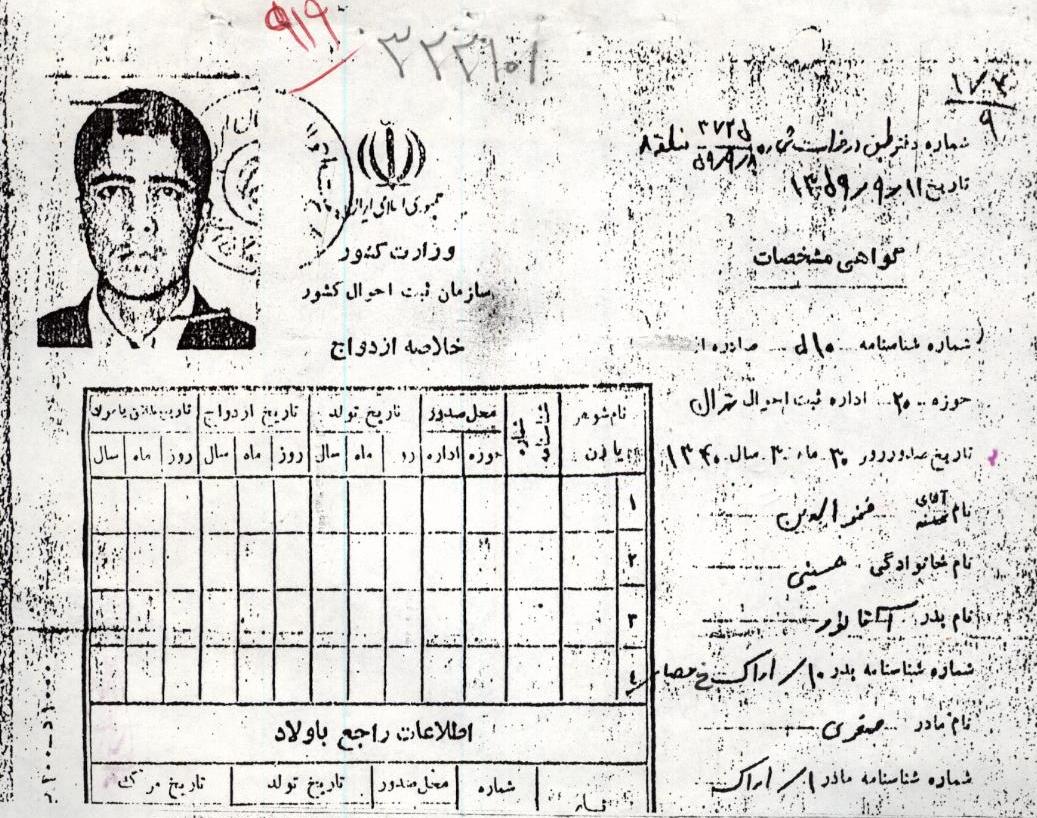 ۹۱۹
۳۲۲۶۰۱
۱۷۳
۹
شماره دفتر طبق درخواست شماره
تاریخ ۱۱ / ۹ / ۱۳۵۹
گواهی مشخصات
جمهوری اسلامی ایران
وزارت کشور
سازمان ثبت احوال کشور
خلاصه ازدواج
شماره شناسنامه ۵۱۰ صادره از
حوزه ۲۰ اداره ثبت احوال تهران
تاریخ صدور روز ۳۰ ماه ۳ سال ۱۳۴۰
نام آقای
نام خانوادگی حسینی
نام پدر
شماره شناسنامه پدر ۱۰ / اراک
نام مادر صغری
شماره شناسنامه مادر ۱ / اراک
نام شوهر یا زن
شماره شناسنامه
محل صدور
حوزه اداره
تاریخ تولد
روز ماه سال
تاریخ ازدواج
روز ماه سال
روز ماه سال
۱
۲
۳
۴
اطلاعات راجع باولاد
شماره
محل صدور
تاریخ تولد
تاریخ مرگ